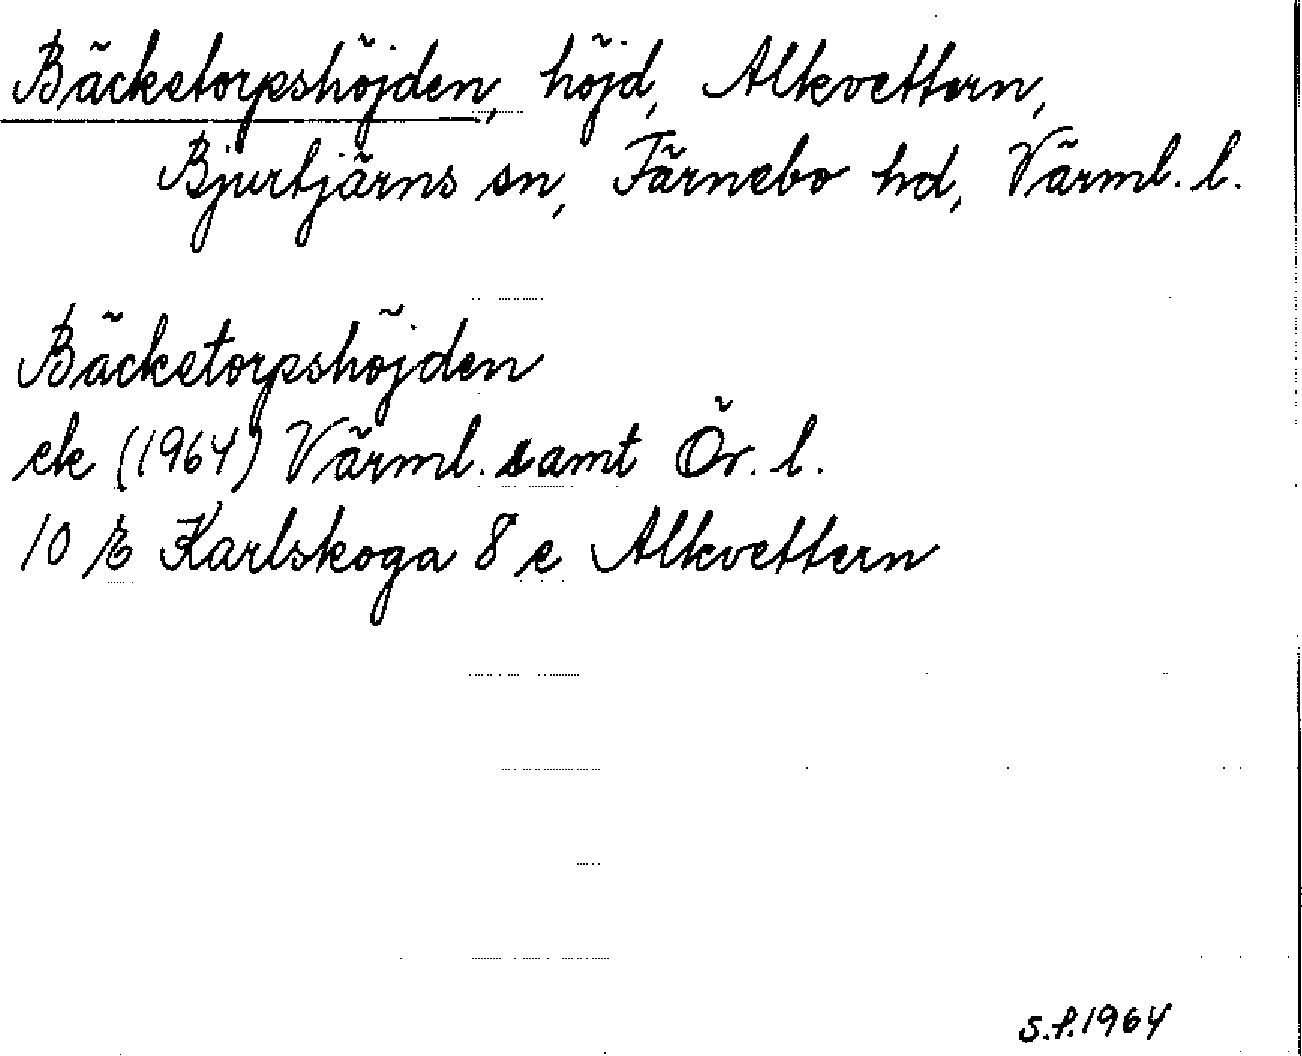 Bäcketorpshöjden, höjd, Alkvettern,
Bjurtjärns sn, Färnebo hd, Värml. l.
Bäcketorpshöjden
ek (1964) Värml. samt Ör. l.
10 E Karlskoga 8 e Alkvettern
S.f. 1964